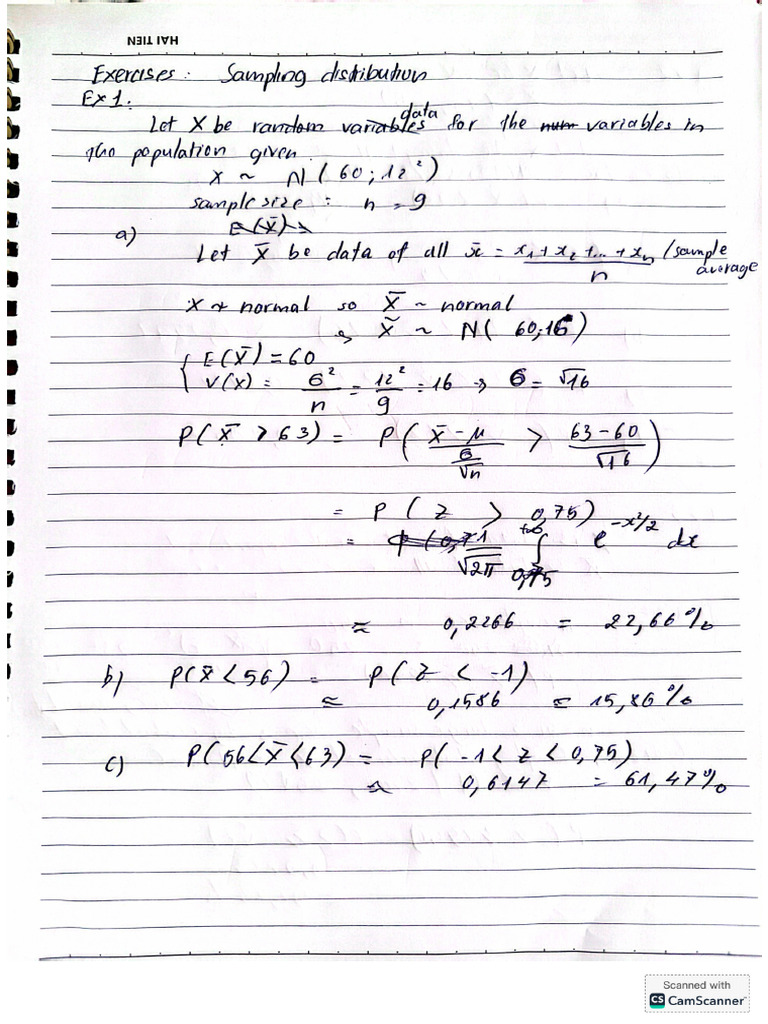 HAI TIEN
Exercises: Sampling distribution
Ex 1:
Let X be random variables data for the num variables in
the population given
X ~ N(60; 12²)
sample size: n = 9
a) E(X̄)
Let X̄ be data of all x̄ = (x₁ + x₂ + ... + xₙ)/n (sample average
X ~ normal so X̄ ~ normal
⇒ X̄ ~ N(60, 16)
{ E(X̄) = 60
V(X) = σ²/n = 12²/9 = 16 → σ = √16
P(X̄ > 63) = P( (X̄ - μ)/(σ/√n) > (63 - 60)/√16 )
= P(Z > 0,75)
= 1/√2π ∫ +∞ 0,75 e^(-x²/2) dx
≈ 0,2266 = 22,66%
b) P(X̄ < 56) = P(Z < -1)
≈ 0,1586 = 15,86%
c) P(56 < X̄ < 63) = P(-1 < Z < 0,75)
≈ 0,6147 = 61,47%
Scanned with
CS CamScanner